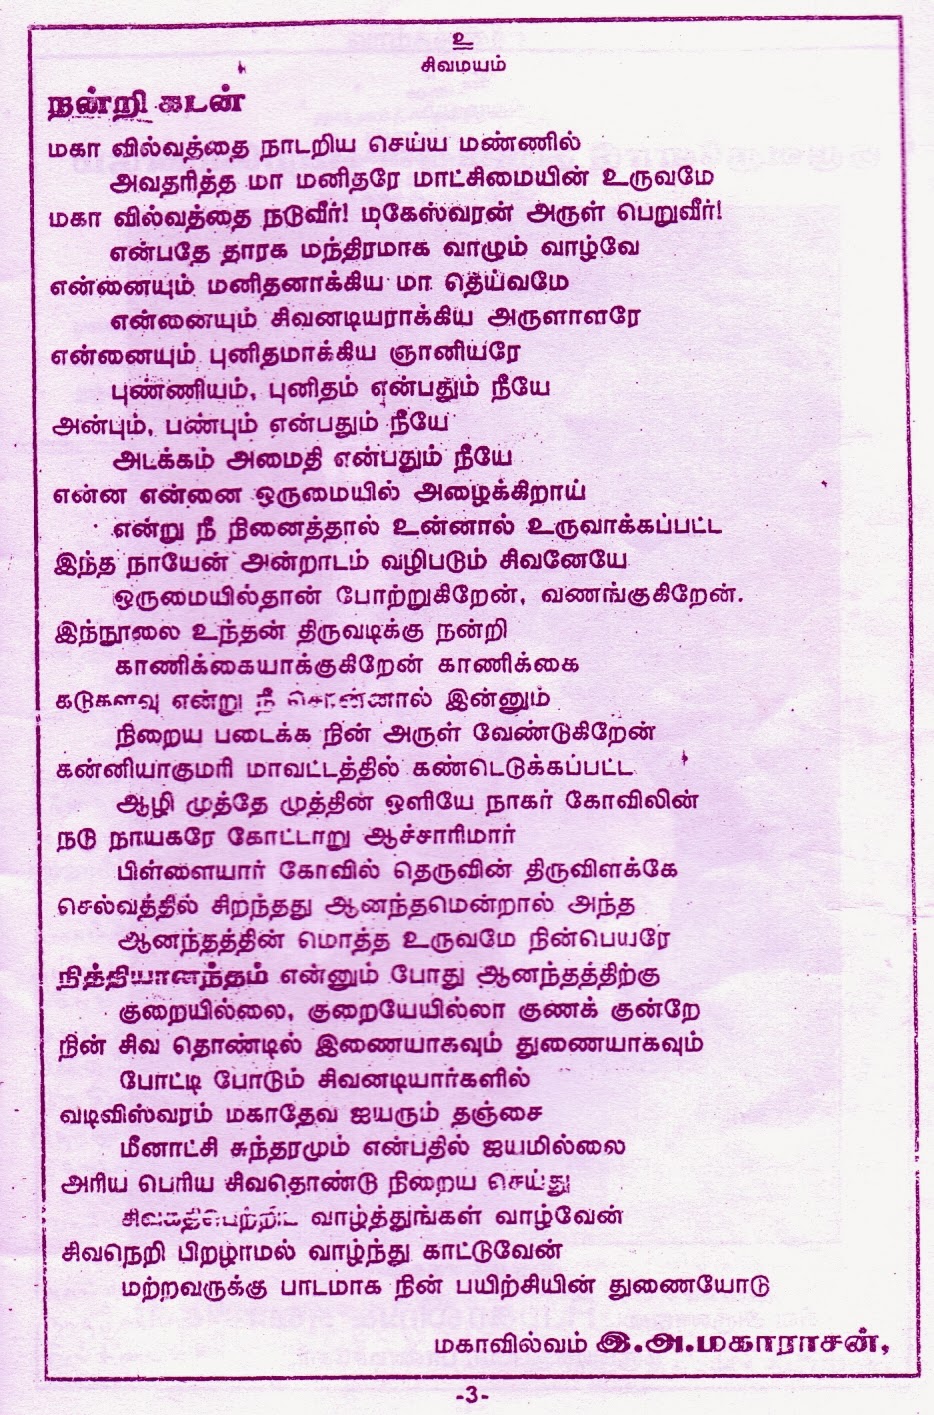 உ
சிவமயம்
நன்றி கடன்
மகா வில்வத்தை நாடறிய செய்ய மண்ணில்
அவதரித்த மா மனிதரே மாட்சிமையின் உருவமே
மகா வில்வத்தை நடுவீர்! மகேஸ்வரன் அருள் பெறுவீர்!
என்பதே தாரக மந்திரமாக வாழும் வாழ்வே
என்னையும் மனிதனாக்கிய மா தெய்வமே
என்னையும் சிவனடியராக்கிய அருளாளரே
என்னையும் புனிதமாக்கிய ஞானியரே
புண்ணியம், புனிதம் என்பதும் நீயே
அன்பும், பண்பும் என்பதும் நீயே
அடக்கம் அமைதி என்பதும் நீயே
என்ன என்னை ஒருமையில் அழைக்கிறாய்
என்று நீ நினைத்தால் உன்னால் உருவாக்கப்பட்ட
இந்த நாயேன் அன்றாடம் வழிபடும் சிவனேயே
ஒருமையில்தான் போற்றுகிறேன், வணங்குகிறேன்.
இந்நூலை உந்தன் திருவடிக்கு நன்றி
காணிக்கையாக்குகிறேன் காணிக்கை
கடுகளவு என்று நீ சொன்னால் இன்னும்
நிறைய படைக்க நின் அருள் வேண்டுகிறேன்
கன்னியாகுமரி மாவட்டத்தில் கண்டெடுக்கப்பட்ட
ஆழி முத்தே முத்தின் ஒளியே நாகர் கோவிலின்
நடு நாயகரே கோட்டாறு ஆச்சாரிமார்
பிள்ளையார் கோவில் தெருவின் திருவிளக்கே
செல்வத்தில் சிறந்தது ஆனந்தமென்றால் அந்த
ஆனந்தத்தின் மொத்த உருவமே நின்பெயரே
நித்தியானந்தம் என்னும் போது ஆனந்தத்திற்கு
குறையில்லை, குறையேயில்லா குணக் குன்றே
நின் சிவ தொண்டில் இணையாகவும் துணையாகவும்
போட்டி போடும் சிவனடியார்களில்
வடிவிஸ்வரம் மகாதேவ ஐயரும் தஞ்சை
மீனாட்சி சுந்தரமும் என்பதில் ஐயமில்லை
அரிய பெரிய சிவதொண்டு நிறைய செய்து
சிவகதிபெற்றிட வாழ்த்துங்கள் வாழ்வேன்
சிவநெறி பிறழாமல் வாழ்ந்து காட்டுவேன்
மற்றவருக்கு பாடமாக நின் பயிற்சியின் துணையோடு
மகாவில்வம் இ.அ.மகாராசன்,
-3-